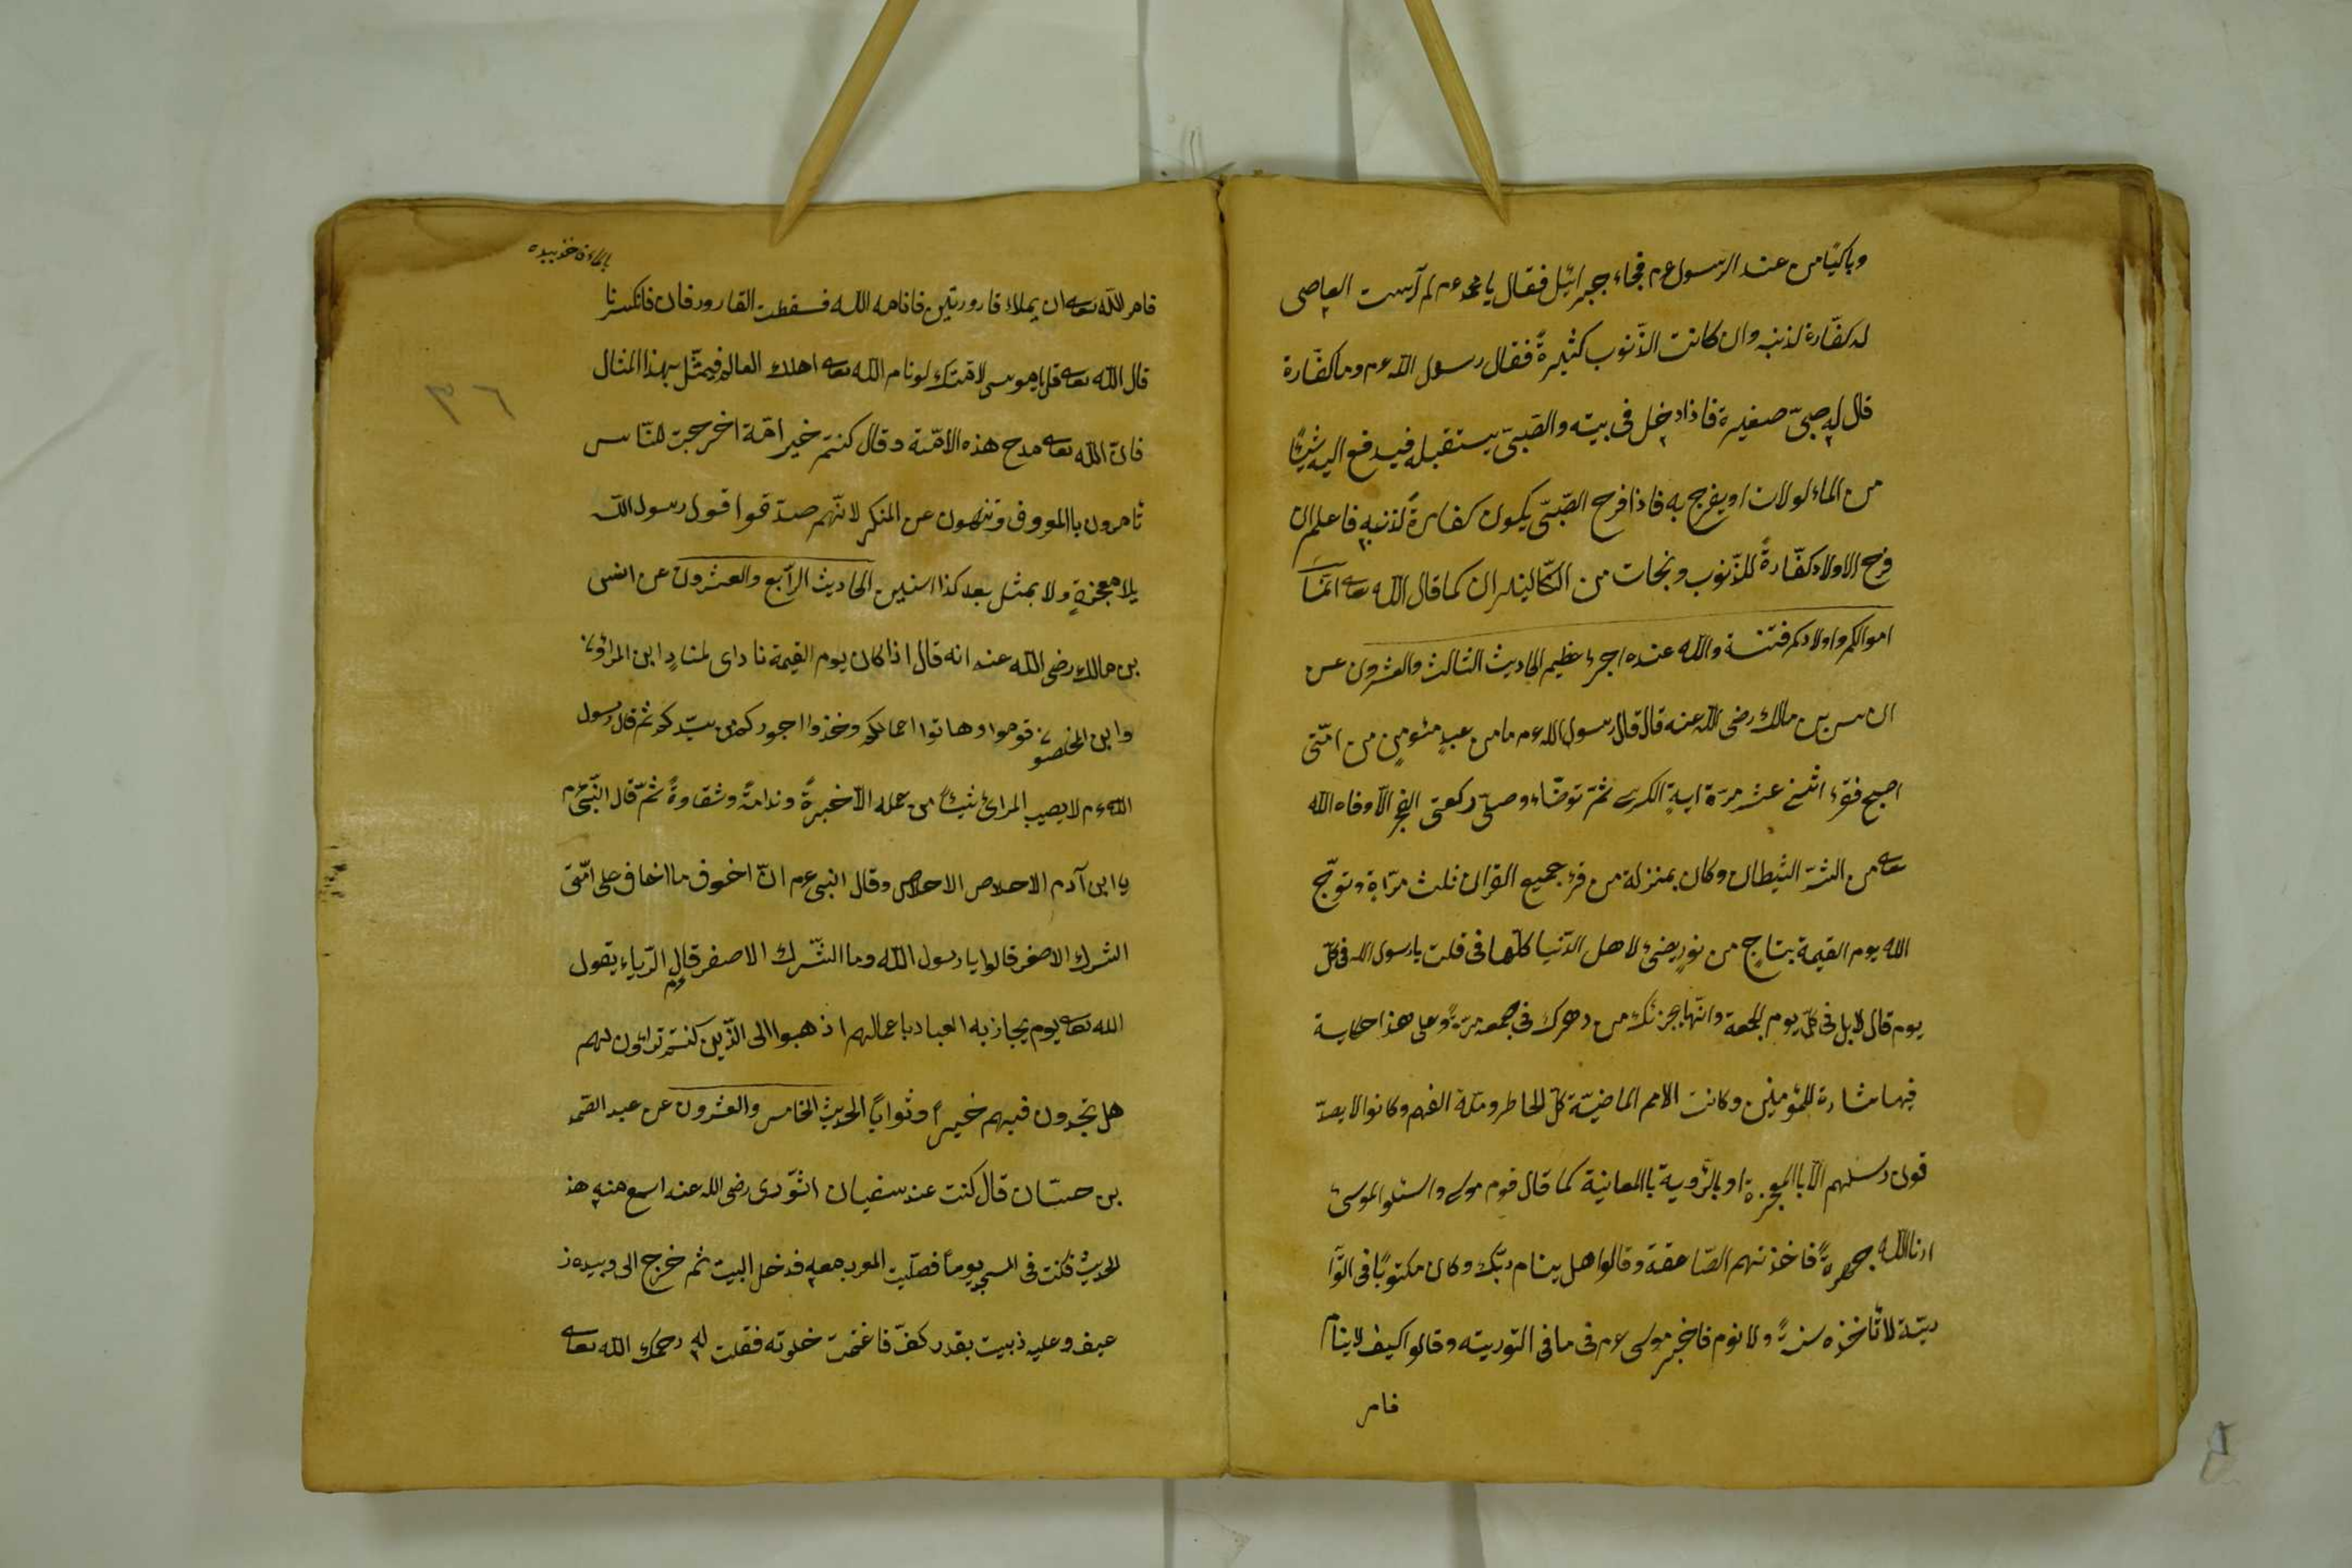 وباكيا من عند الرسول عم فجاء جبرائيل فقال يا محمد عم لم آيست العاصى
له كفّارة لذنبه وان كانت الذّنوب كثيرةً فقال رسول الله عم وما كفّارة
قال له صبىّ صغيرة فاذا دخل فى بيته والصّبىّ يستقبله فيدفع اليه شيئًا
من الماء لولات او يفرح به فاذا فرح الصّبىّ يكون كفارةً لذنبه فاعلم ان
فرح الاولاد كفّارةً للذّنوب ونجات من النّيران كما قال الله تعا انّما
اموالكم واولادكم فتنة والله عنده اجر عظيم الحاديث الثالث والعشرون عن
انس بن مالك رضى الله عنه قال قال رسول الله عم ما من عبدٍ مئومنٍ من امّتى
اصبح فقرء اثنى عشر مرّة اية الكرسى ثمّ توضّاء وصلّى ركعتى الفجر الّا وقاه الله
تعا من الشّر الشّيطان وكان بمنزلة من قرء جميع القران ثلث مرّاة وتوّج
الله يوم القيمة بتاجٍ من نورٍ يضئ لاهل الدّنيا كلّها فى قلت يا رسول الله فى كلّ
يوم قال لا بل فى كلّ يوم الجمعة وانّها يجزئك من دهرك فى جمعة مرّةً وعلى هذا حكاية
فيها بشارة للمؤمنين وكانت الامم الماضيّة كلّ الخاطر وقلة الفهم وكانوا لا يصدّ
قون رسلهم الّا باالمعجزة او بالرّؤية باالمعانية كما قال قوم موسى واسئلوا الموسى
ارنا الله جهرةً فاخذتهم الصّاعقة وقالوا هل ينام ربّك وكان مكتوبًا فى التّوا
ريّة لا تأخذه سنةً ولا نوم فاخبر موسى عم فى ما فى التوريته وقالوا كيف لا ينام
فامر
بالماء فاخذ بيده
فامر الله تعا ان يملاء قارورتين فانامه الله فسقطت القارورتان فانكسرتا
قال الله تعا قل يا موسى لامّتك لو نام الله تعا اهلك العالم فيمثّل بهذا المثال
فانّ الله تعا مدح هذه الامّة وقال كنتم خير امّة اخرجت للنّاس
تامرون باالمعروف وتنهون عن المنكر لانّهم صدّقوا قول رسول الله
بلا معجزةٍ ولا بمثل بعد كذا اسنين الحاديث الرّابع والعشرون عن انس
بن مالك رضى الله عنه انه قال اذا كان يوم القيمة نادى لمنادٍ اين المراؤن
واين المخلصون قوموا وهاتوا اعمالكم وخذوا اجوركم من ربّكم ثم قال رسول
الله عم لا يصيب المرائ شيئًا من عمله الّا خبرةً وندامةً وشقاوةً ثمّ قال النّبى عم
يا ابن آدم الاحلاص الاحلاص وقال النبى عم انّ اخوف ما اخاف على امّتى
الشرك الاصغر قالوا يا رسول الله وما الشّرك الاصغر قال عم الرّياء يقول
الله تعا يوم يجاز به العباد باعمالهم اذهبوا الى الّذين كنتم ترائون لهم
هل تجدون فيهم خيرًا وثوابًا الحديث الخامس والعشرون عن عبد الصّمد
بن حسّان قال كنت عند سفيان الثّورى رضى الله عنه اسمع منه هذ
الحديث فكنت فى المسجد يومًا فصلّيت المغرب معه فدخل البيت ثم خرج الى وبيده ز
عيف وعليه زبيت بقدر كفّ فاغتمّت خلوته فقلت له رحمك الله تعا
٣٦